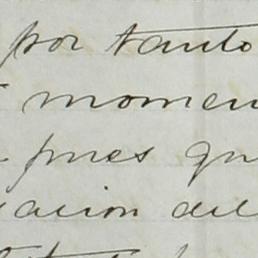 por tanto
momen
pues qu
acion del